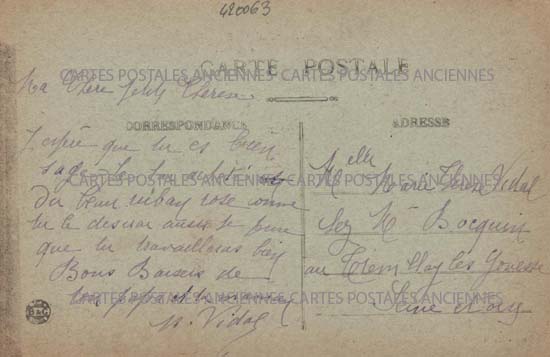 420063
CARTE POSTALE
CARTES POSTALES ANCIENNES - CARTES POSTALES ANCIENNES
Ma Chère petite Thérèse
CORRESPONDANCE
ADRESSE
J'espère que tu es bien
sage
CARTES POSTALES ANCIENNES - CARTES POSTALES ANCIENNES
du beau ruban rose comme
tu le desirai aussi je pense
que tu travailleras bien
Bons Baisers de
ton papa et ta maman
CARTES POSTALES ANCIENNES - CARTES POSTALES ANCIENNES
Vidal
B&G
Melle Marie Thérèse Vidal
chez Mr Bocquin
au Tremblay les Gonesse
Seine et Oise